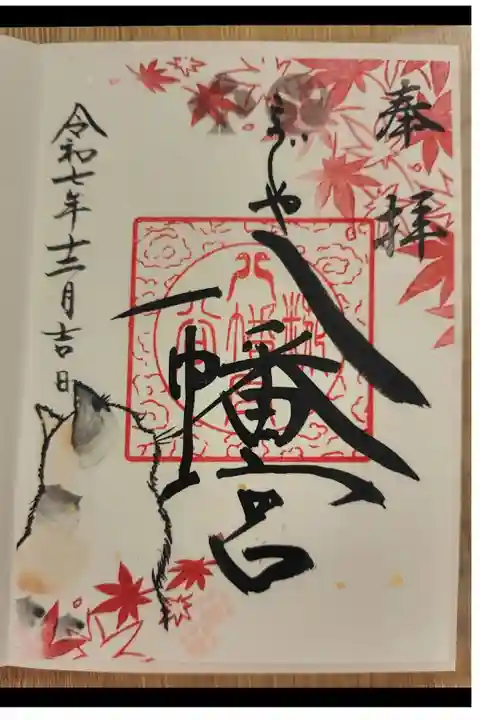 奉拝
八幡宮
令和七年十二月吉日